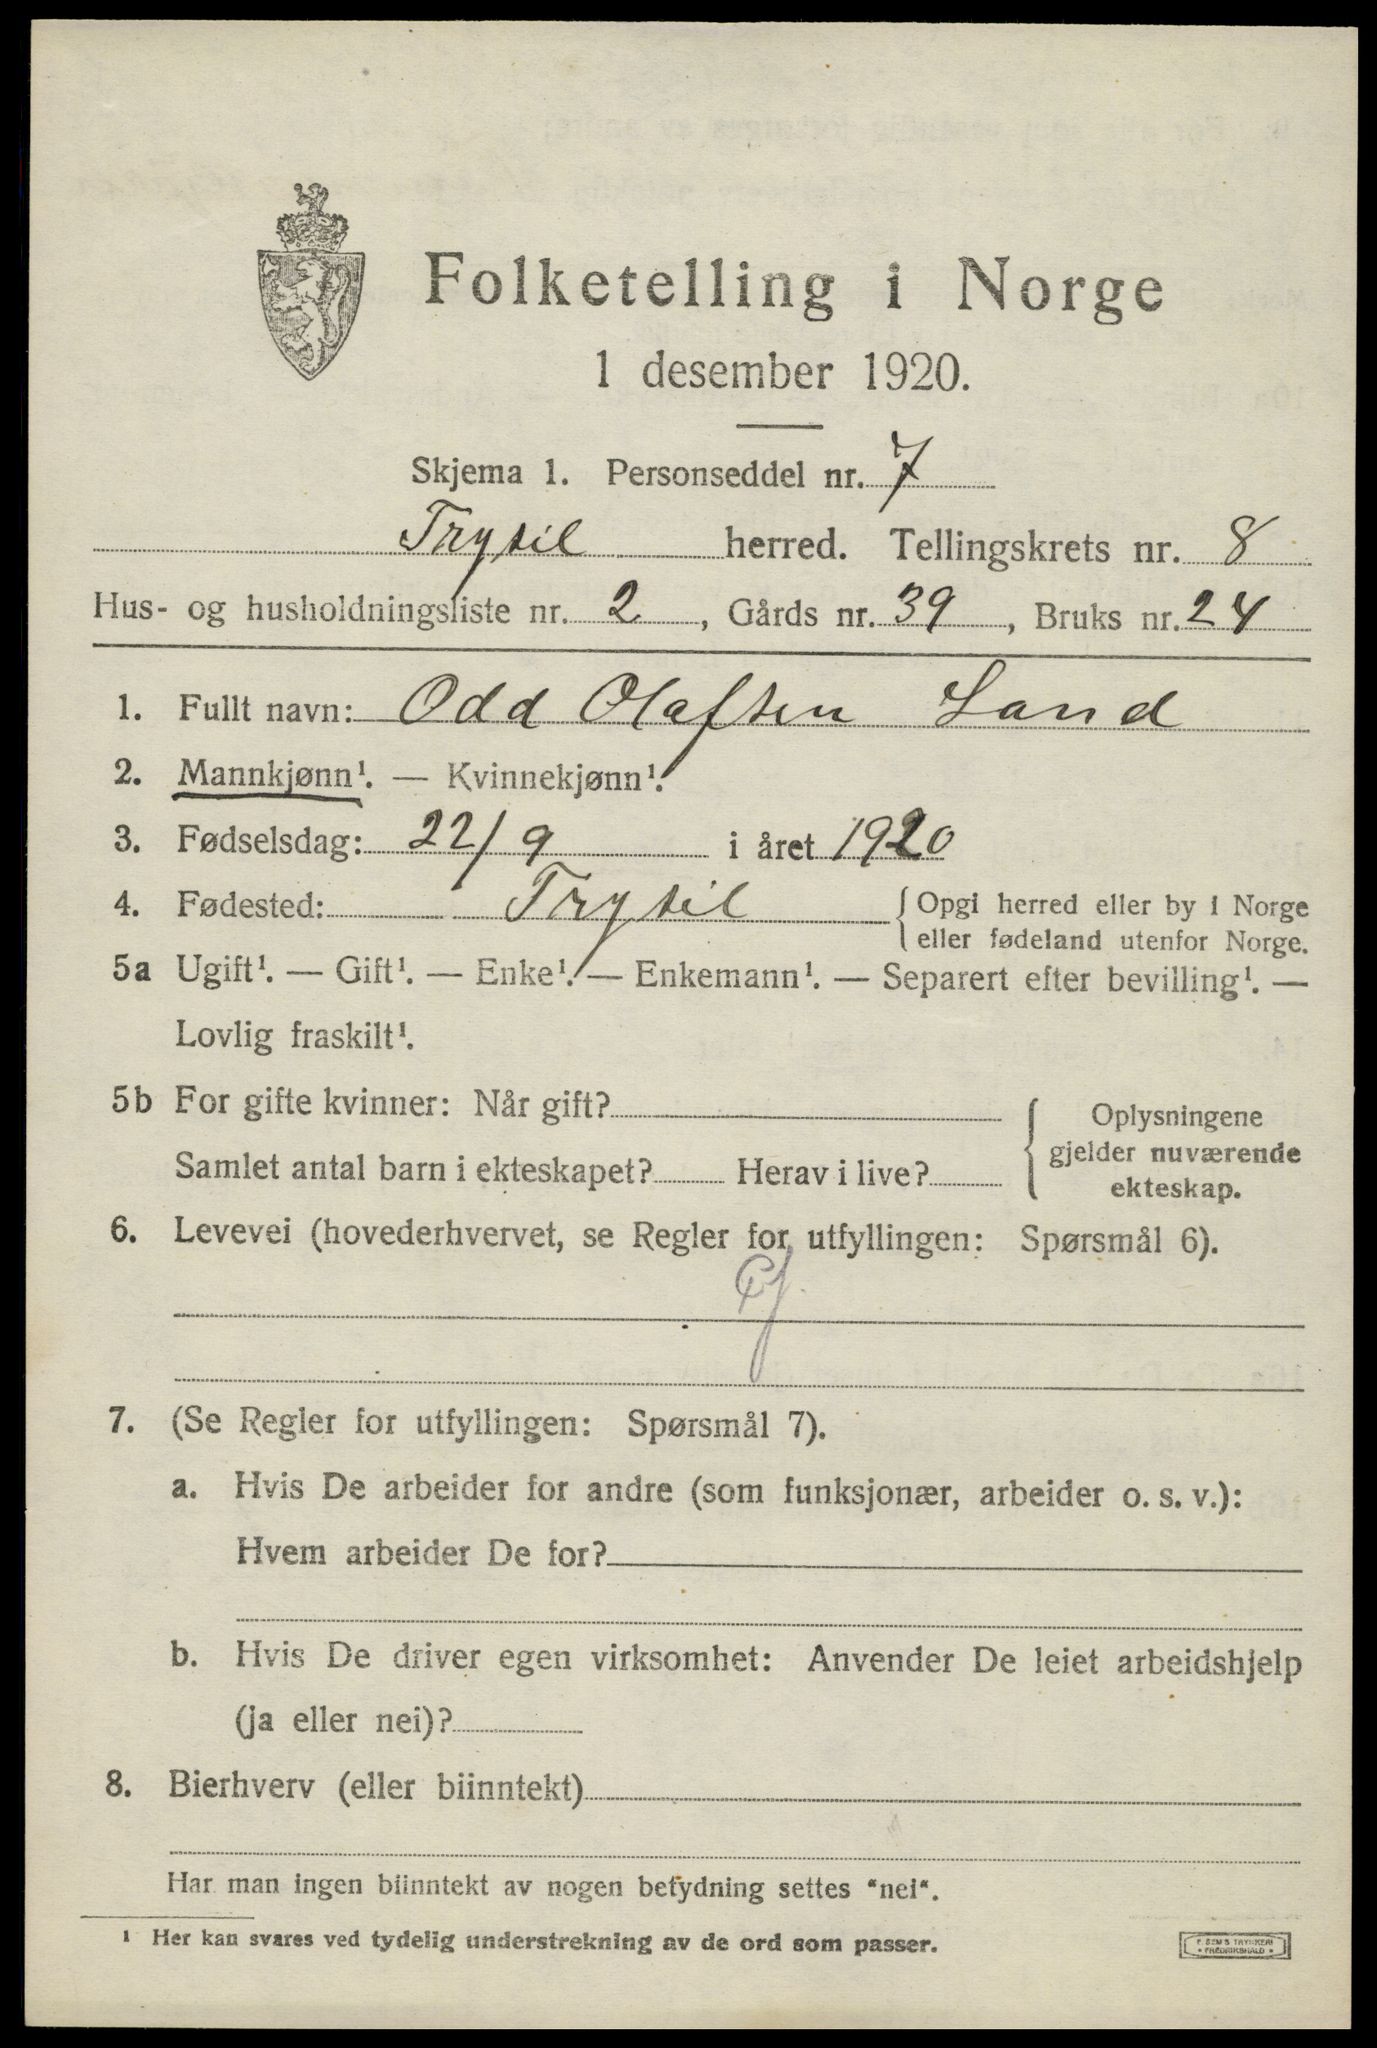 Folketelling i Norge
1 desember 1920.
Skjema 1. Personseddel nr. 7
Trysil herred. Tellingskrets nr. 8
Hus- og husholdningsliste nr. 2, Gårds nr. 39, Bruks nr. 24
1. Fullt navn: Odd Olafsen Sand
2. Mannkjønn¹. — Kvinnekjønn¹.
3. Fødselsdag: 22/9 i året 1920
4. Fødested: Trysil { Opgi herred eller by i Norge
eller fødeland utenfor Norge.
5a Ugift¹. — Gift¹. — Enke¹. — Enkemann¹. — Separert efter bevilling¹. —
Lovlig fraskilt¹.
5b For gifte kvinner: Når gift?
Samlet antal barn i ekteskapet? Herav i live?
Oplysningene
gjelder nuværende
ekteskap.
6. Levevei (hovederhvervet, se Regler for utfyllingen: Spørsmål 6).
7. (Se Regler for utfyllingen: Spørsmål 7).
a. Hvis De arbeider for andre (som funksjonær, arbeider o. s. v.):
Hvem arbeider De for?
b. Hvis De driver egen virksomhet: Anvender De leiet arbeidshjelp
(ja eller nei)?
8. Bierhverv (eller biinntekt)
Har man ingen biinntekt av nogen betydning settes "nei".
¹ Her kan svares ved tydelig understrekning av de ord som passer.
E. SEMS TRYKKERI
FREDRIKSHALD